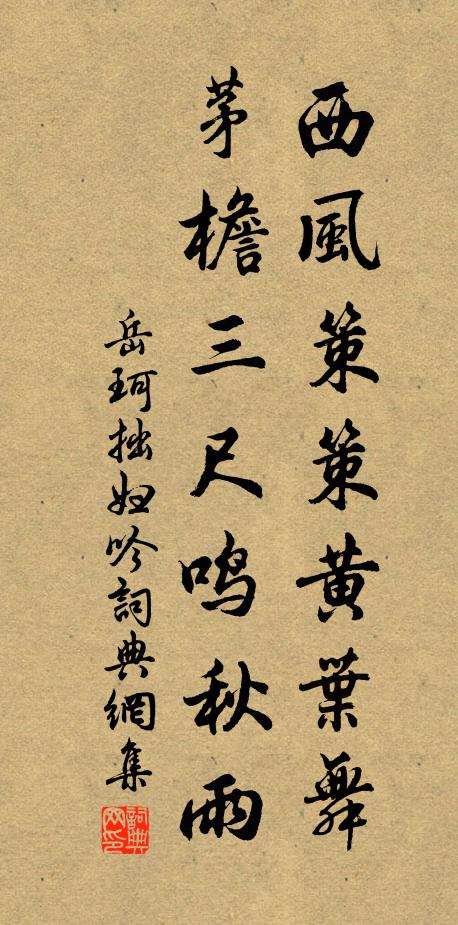 西風策策黃葉舞
茅檐三尺鳴秋雨
岳珂拙婦吟詞典網集
詞典網印